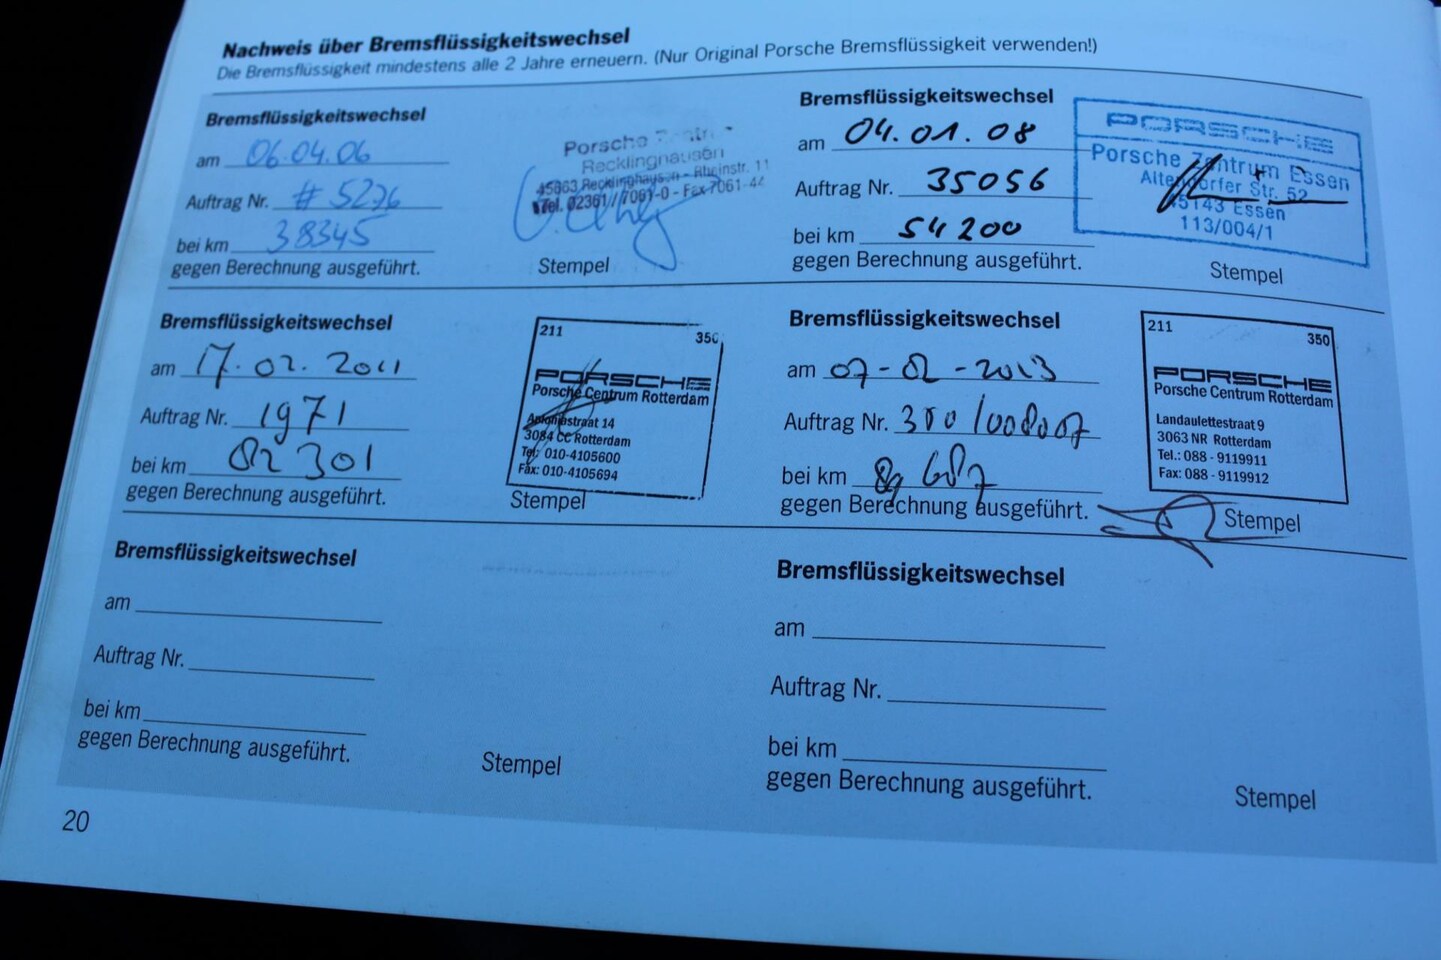 Nachweis über Bremsflüssigkeitswechsel
Die Bremsflüssigkeit mindestens alle 2 Jahre erneuern. (Nur Original Porsche Bremsflüssigkeit verwenden!)
Bremsflüssigkeitswechsel
am 06.04.06
Auftrag Nr. # 5276
bei km 38345
gegen Berechnung ausgeführt.
Porsche
Recklinghausen
45663 Recklinghausen - Rheinstr. 11
Tel. 02361 / 7061-0 - Fax 7061-44
Stempel
Bremsflüssigkeitswechsel
am 04.01.08
Auftrag Nr. 35056
bei km 54200
gegen Berechnung ausgeführt.
PORSCHE
Porsche Zentrum Essen
Altendorfer Str. 52
45143 Essen
113/004/1
Stempel
Bremsflüssigkeitswechsel
am 17.02.2011
Auftrag Nr. 1971
bei km 82301
gegen Berechnung ausgeführt.
211 350
PORSCHE
Porsche Centrum Rotterdam
straat 14
3084 CC Rotterdam
Tel: 010-4105600
Fax: 010-4105694
Stempel
Bremsflüssigkeitswechsel
am 07-02-2013
Auftrag Nr.
bei km 89687
gegen Berechnung ausgeführt.
211 350
PORSCHE
Porsche Centrum Rotterdam
Landaulettestraat 9
3063 NR Rotterdam
Tel.: 088 - 9119911
Fax: 088 - 9119912
Stempel
Bremsflüssigkeitswechsel
am
Auftrag Nr.
bei km
gegen Berechnung ausgeführt.
Stempel
Bremsflüssigkeitswechsel
am
Auftrag Nr.
bei km
gegen Berechnung ausgeführt.
Stempel
20